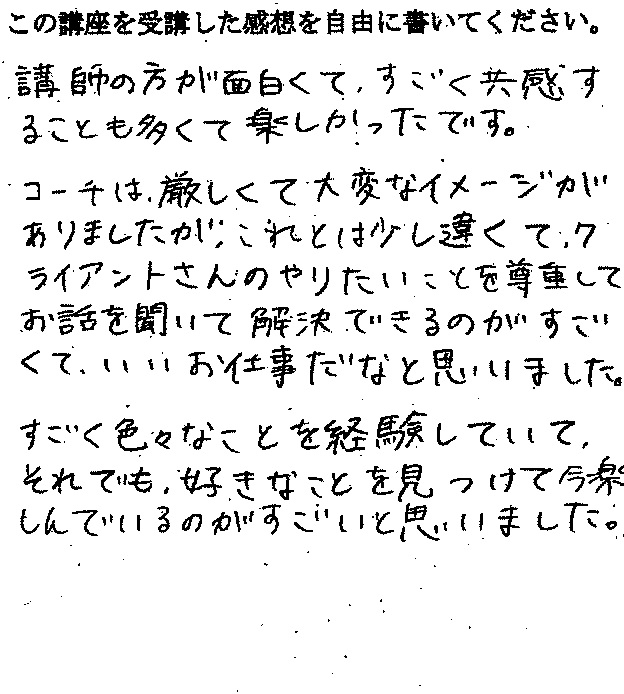 この講座を受講した感想を自由に書いてください。
講師の方が面白くて、すごく共感す
ることも多くて楽しかったです。
コーチは、厳しくて大変なイメージが
ありましたが、これとは少し違くて、ク
ライアントさんのやりたいことを尊重して
お話を聞いて解決できるのがすご
くて、いいお仕事だなと思いました。
すごく色々なことを経験していて、
それでも、好きなことを見つけて今楽
しんでいるのがすごいと思いました。